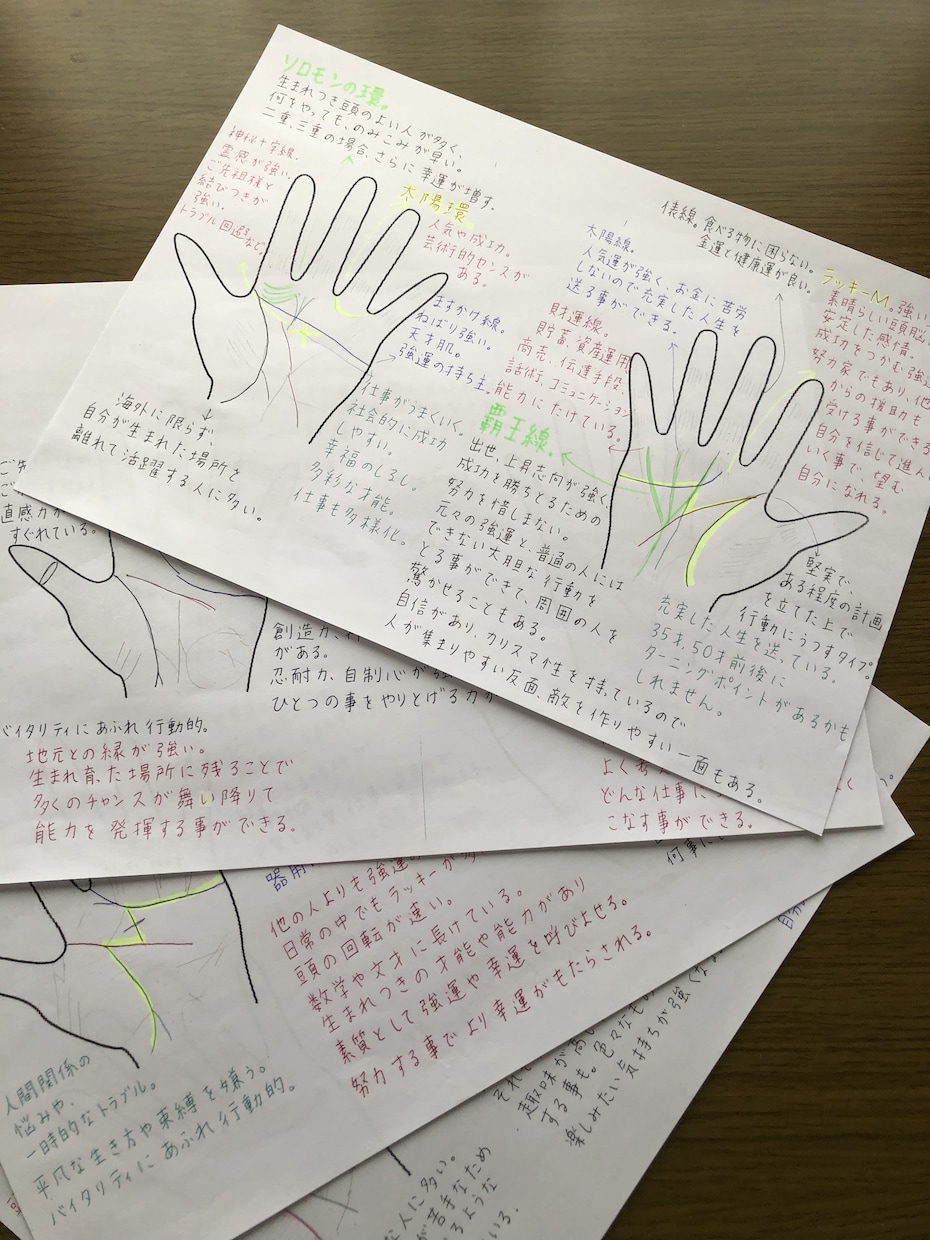 ソロモンの環。
生まれつき頭のよい人が多く、
何をやっても、のみこみが早い。
二重、三重の場合、さらに幸運が増す。
神秘十字線。
霊感が強い。
ご先祖様と
結びつきが
強い。
トラブル回避など。
太陽環。
人気や成功。
芸術的センスが
ある。
ますかけ線。
ねばり強い。
天才肌。
強運の持ち主。
仕事がうまくいく。
社会的に成功
しやすい。
幸福のしるし。
多彩な才能。
仕事も多様化。
海外に限らず、
自分が生まれた場所を
離れて活躍する人に多い。
俵線。食べる物に困らない。
金運と健康運が良い。
太陽線。
人気運が強く、お金に苦労
しないので充実した人生を
送る事ができる。
財運線。
貯蓄、資産運用
商売、伝達手段
話術、コミュニケーション
能力にたけている。
ラッキーM。強い
素晴らしい頭脳
安定した感情。
成功をつかむ強運
努力家でもあり、他
からの援助も
受ける事ができる
自分を信じて進ん
いく事で、望む
自分になれる。
覇王線。
出世、上昇志向が強く、
成功を勝ちとるための
努力を惜しまない。
元々の強運と、普通の人には
できない大胆な行動を
とる事ができて、周囲の人を
驚かせることもある。
自信があり、カリスマ性を持っているので
人が集まりやすい反面、敵を作りやすい一面もある。
堅実で、
ある程度の計画
を立てた上で
行動にうつすタイプ。
充実した人生を送っている。
35才、50才前後に
ターニングポイントがあるかも
しれません。
ご先
ご
直感力が
すぐれている。
創造力、
がある。
忍耐力、自制心が強
ひとつの事をやりとげる力
バイタリティにあふれ行動的。
地元との縁が強い。
生まれ育った場所に残ることで
多くのチャンスが舞い降りて
能力を発揮する事ができる。
よく考
どんな仕事に
こなす事ができる。
何事に
器用
他の人よりも強運の
日常の中でもラッキーが
頭の回転が速い。
数学や文才に長けている。
生まれつきの才能や能力があり
素質として強運や幸運を呼びよせる。
努力する事でより幸運がもたらされる。
人間関係の
悩みや、
一時的なトラブル。
平凡な生き方や束縛を嫌う。
バイタリティにあふれ行動的。
それ
趣味が高
する事も。色々なも
楽しみたい気持ちが強く
な人に多い。
が苦手なため
るような
いる。